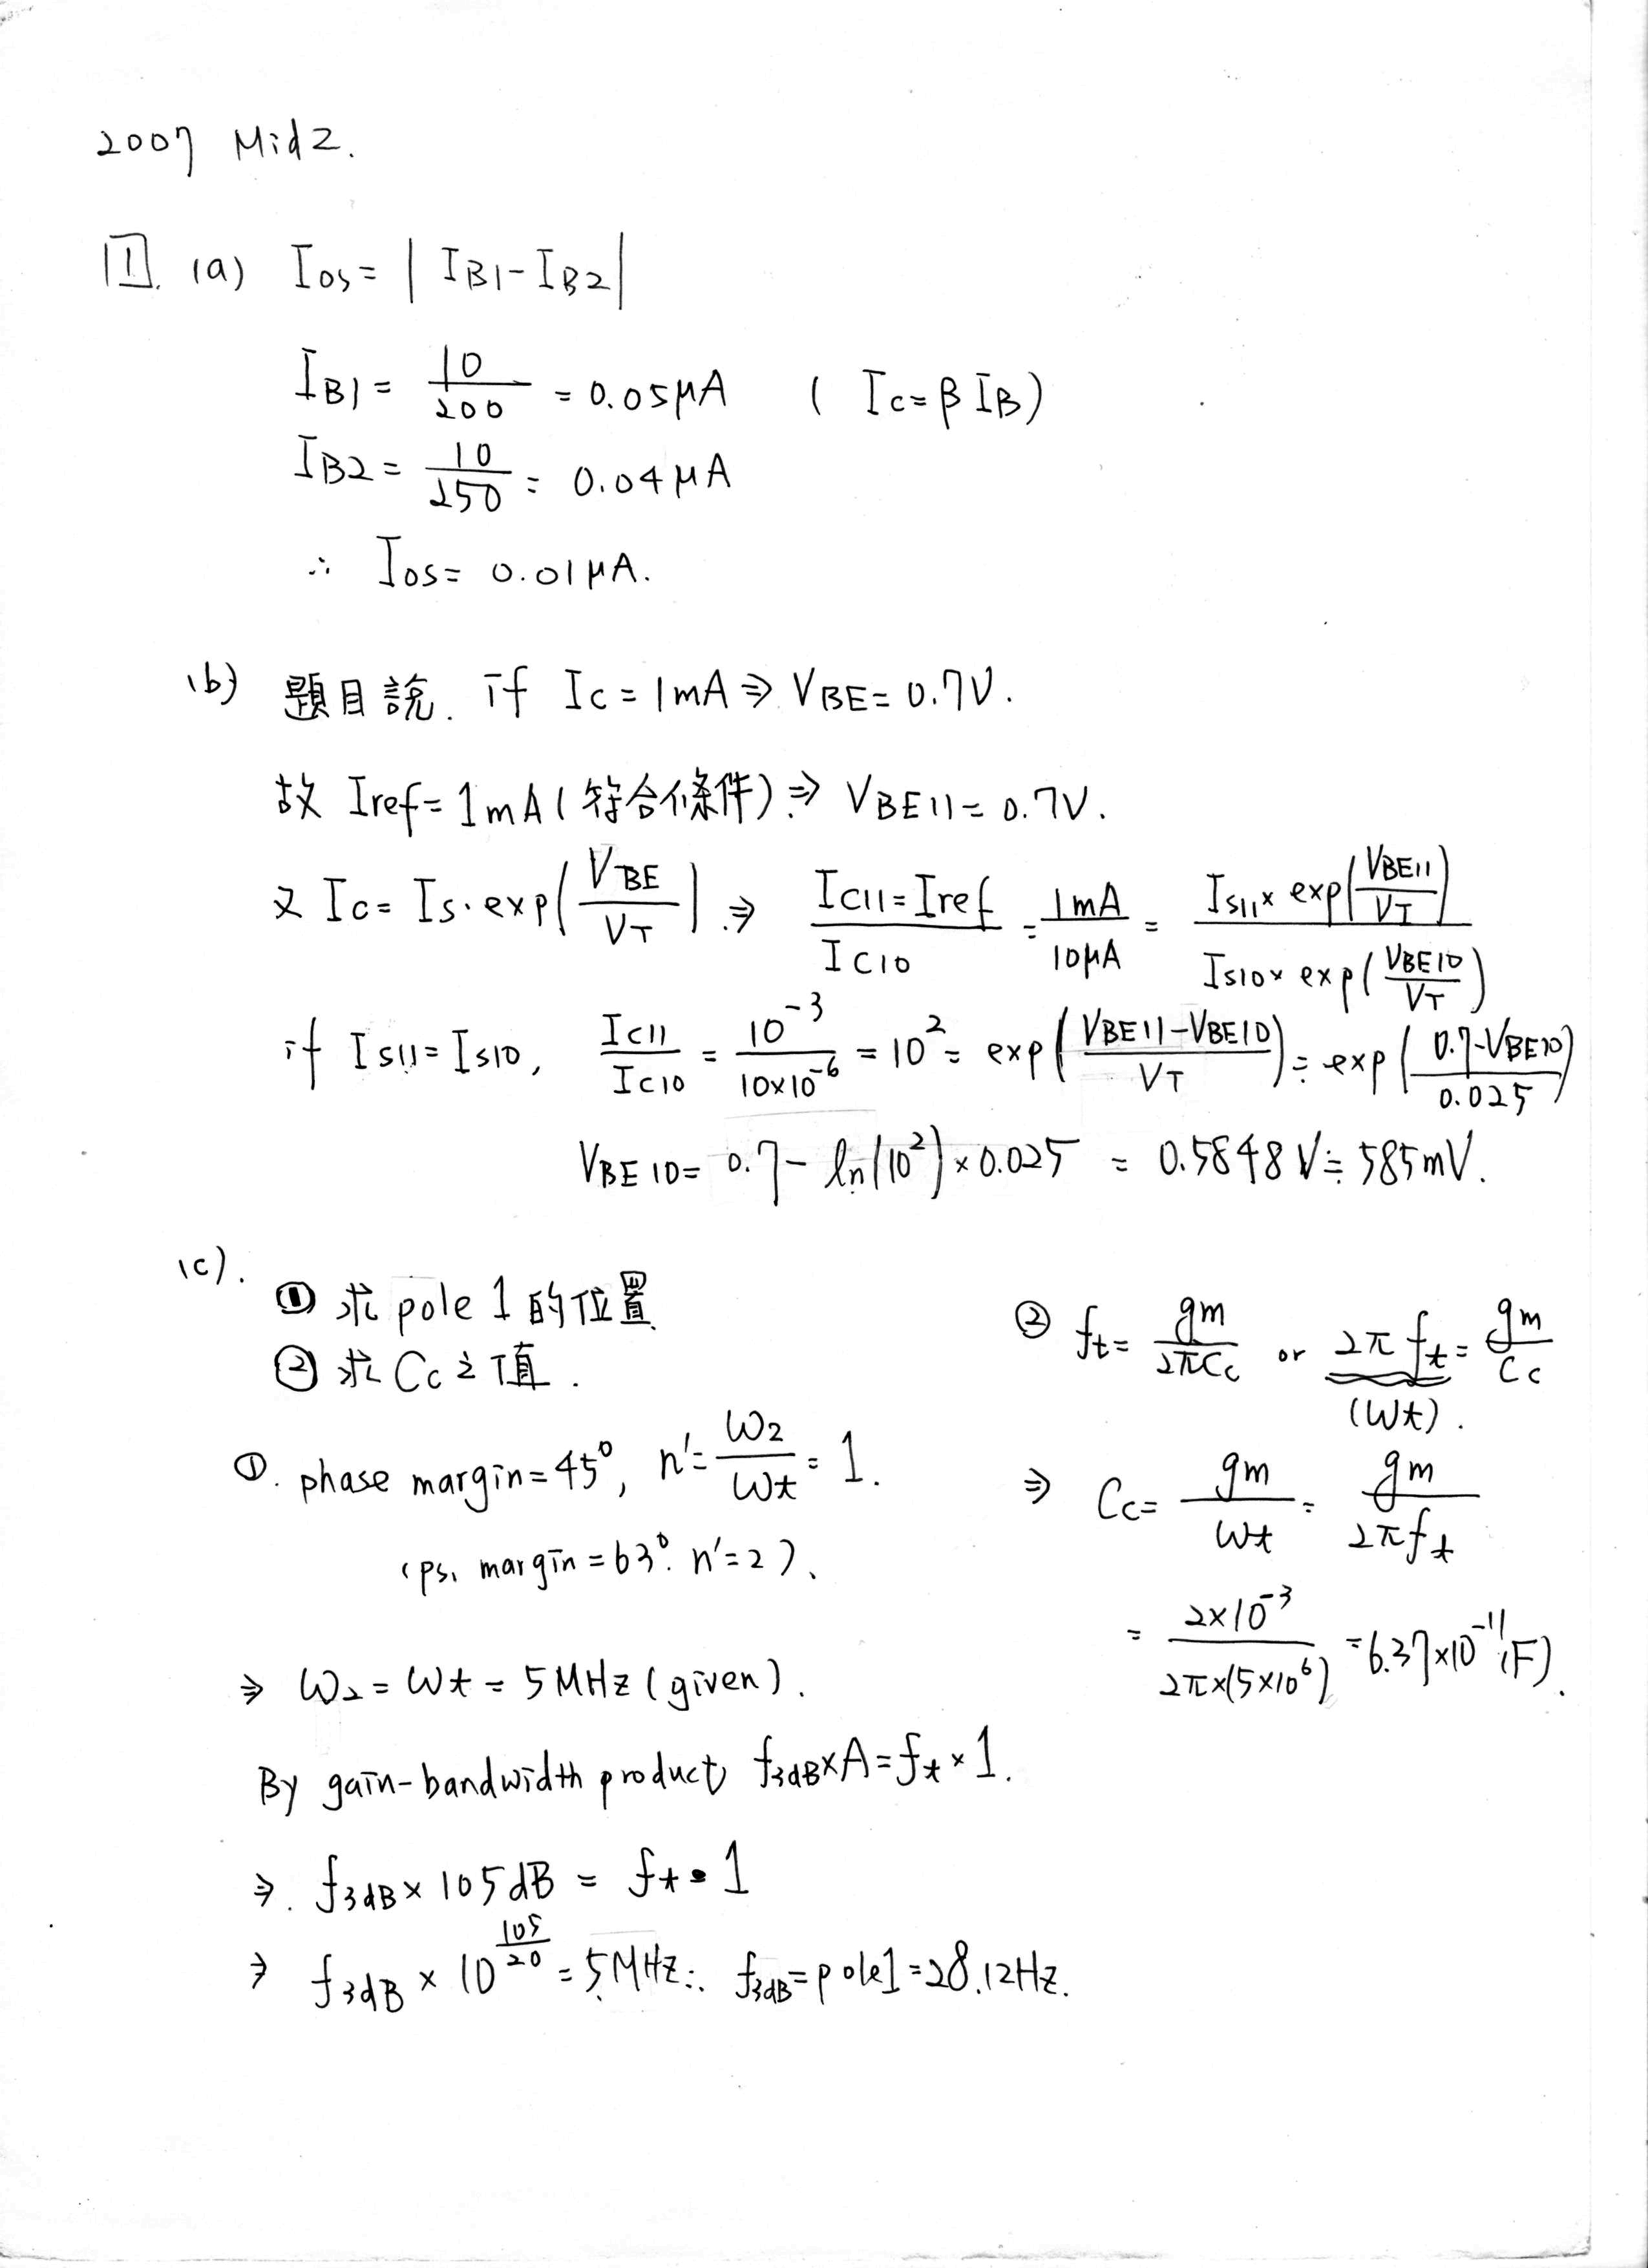 2007 Mid 2.
1. (a) Ios = | IB1 - IB2 |
IB1 = 10/200 = 0.05μA ( Ic = β IB)
IB2 = 10/250 = 0.04μA
∴ Ios = 0.01μA.
(b) 題目說. if Ic = 1mA ⇒ VBE = 0.7V.
故 Iref = 1mA (符合條件) ⇒ VBE11 = 0.7V.
又 Ic = Is · exp(VBE/VT) ⇒ (IC11 = Iref)/IC10 = 1mA/10μA = (IS11 × exp(VBE11/VT))/(IS10 × exp(VBE10/VT))
if IS11 = IS10, IC11/IC10 = 10^-3/10×10^-6 = 10^2 = exp((VBE11-VBE10)/VT) = exp((0.7-VBE10)/0.025)
VBE10 = 0.7 - ln(10^2) × 0.025 = 0.5848 V ≒ 585mV.
(c).
① 求 pole 1 的位置.
② 求 Cc 之值.
①. phase margin = 45°, n' = ω2/ωt = 1.
(ps. margin = 63°. n' = 2).
⇒ ω2 = ωt = 5MHz (given).
By gain-bandwidth product, f3dB × A = ft × 1.
⇒. f3dB × 105dB = ft • 1
⇒ f3dB × 10^(105/20) = 5MHz ∴ f3dB = pole1 = 28.12Hz.
② ft = gm/2πCc or 2πft = gm/Cc
(ωt).
⇒ Cc = gm/ωt = gm/2πft
= 2×10^-3/2π×(5×10^6) = 6.37×10^-11 (F).